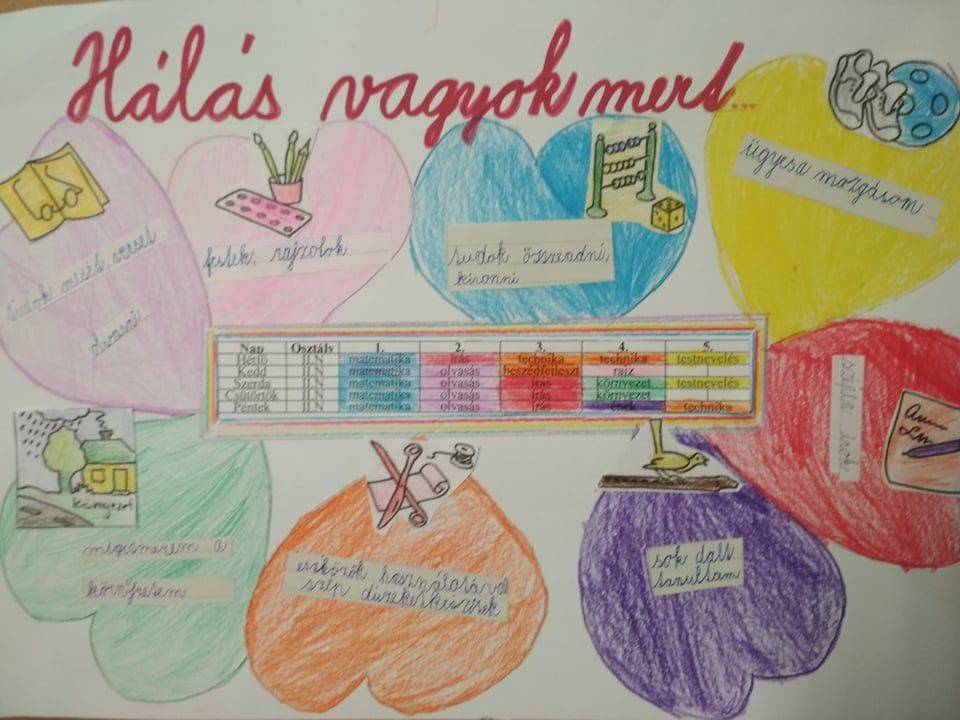 Hálás vagyok mert...
ügyesa mozgásom
festek, rajzolok
tudok összeadni,
kivonni
tudok mesét, verset
olvasni
Nap Osztály 1. 2. 3. 4. 5.
Hétfő II.N matematika írás technika technika testnevelés
Kedd II.N matematika olvasás beszédfejleszt rajz
Szerda II.N matematika olvasás írás környezet testnevelés
Csütörtök II.N matematika olvasás írás környezet
Péntek II.N matematika olvasás írás ének technika
szépen írok
Környezet
megismerem a
környezetem
eszközök használatával
szép díszeket készítek
sok dalt
tanultam